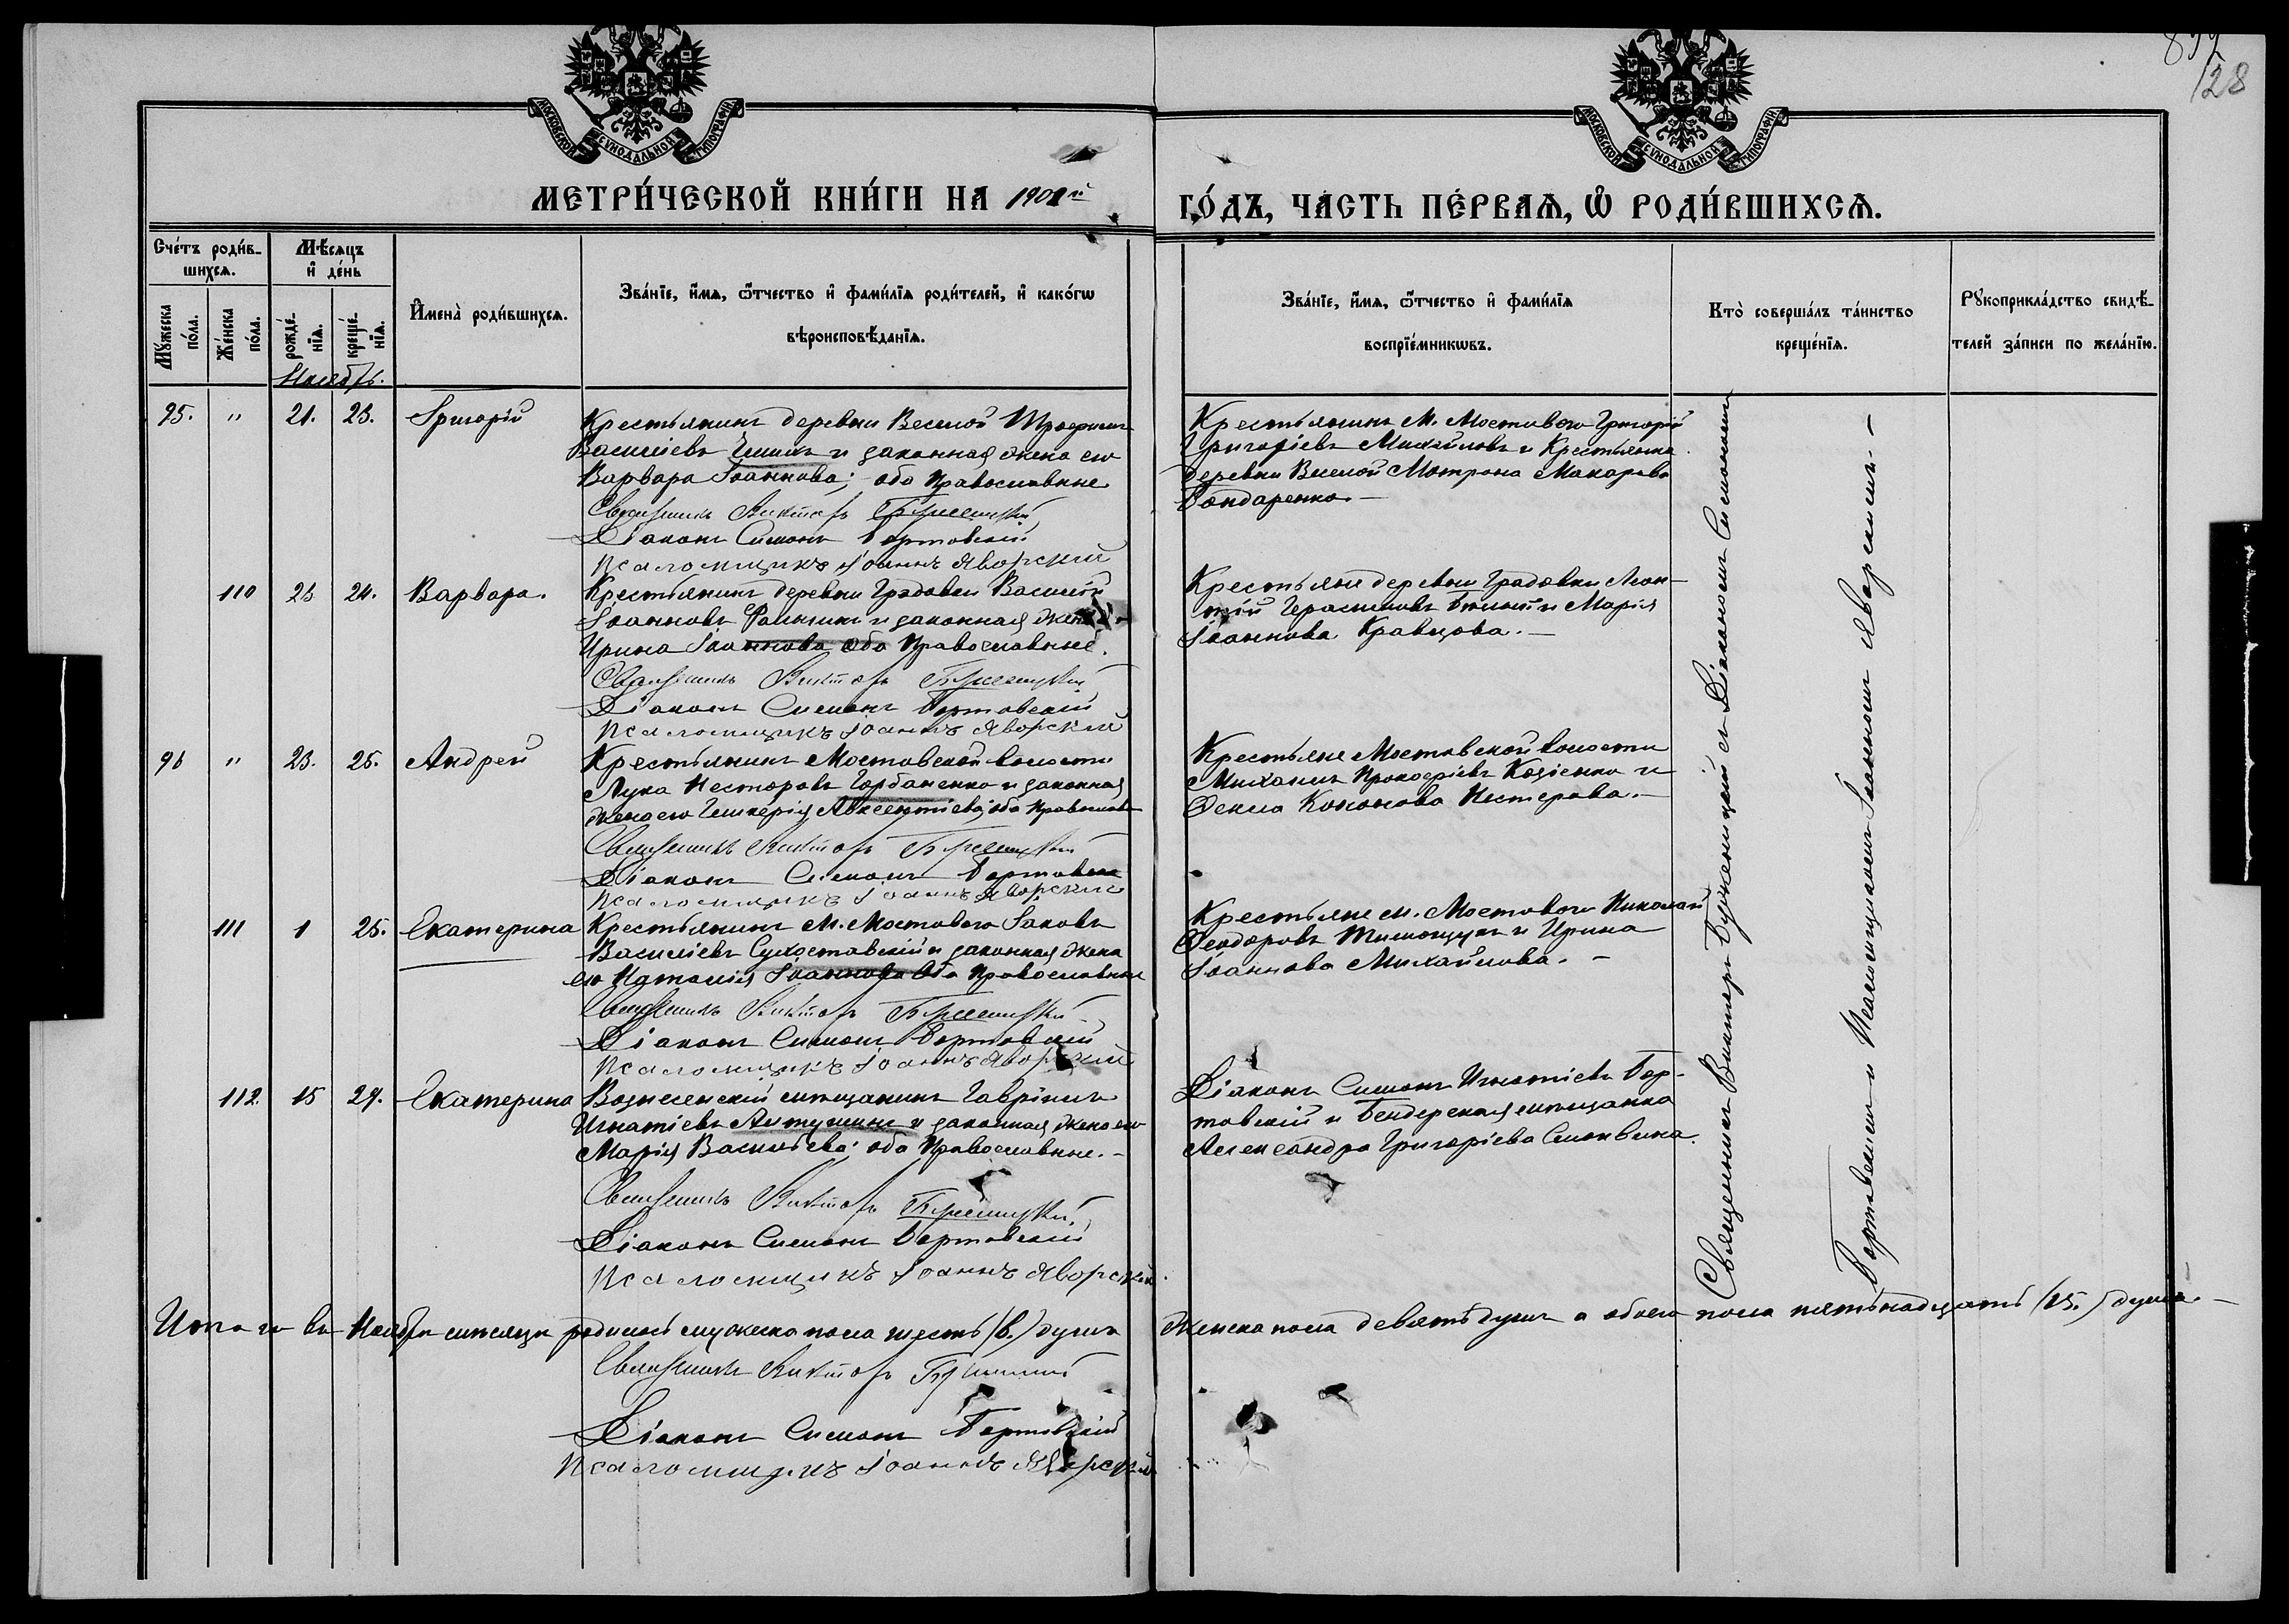 899
128
МОСКОВСКОЙ СѴНОДАЛЬНОЙ ТИПОГРАФІИ
МОСКОВСКОЙ СѴНОДАЛЬНОЙ ТИПОГРАФІИ
МЕТРИ́ЧЕСКОЙ КНИ́ГИ НА 1901й ГО́ДЪ, ЧА́СТЬ ПЕ́РВАѦ, Ѡ РОДИ́ВШИХСѦ.
Сче́тъ роди́в-
шихсѧ.
Мѣ́сяцъ
и҆ де́нь
Мꙋ́жеска по́ла.
Же́нска по́ла.
рожде́-
нїѧ.
креще́-
нїѧ.
И҆мена̀ роди́вшихсѧ.
Зва́нїе, и҆́мѧ, ѻ҆́тчество и҆ фами́лїѧ роди́телей, и҆ како́гѡ
вѣроисповѣ́данїѧ.
Зва́нїе, и҆́мѧ, ѻ҆́тчество и҆ фами́лїѧ
воспрїе́мникѡвъ.
Кто̀ соверша́лъ та́инство
креще́нїѧ.
Рꙋкоприкла́дство свидѣ́-
телей за́писи по жела́нїю.
Ноябрь.
95. " 21. 23. Григорій
Крестьянинъ деревни Веселой Трофимъ
Василіевъ и законная жена его
Варвара Іоаннова; оба Православные
Священникъ Викторъ
Діаконъ Симонъ Бортовскій
Псаломщикъ Іоаннъ Яворскій
Крестьянинъ М. Мостового Григорій
Григоріевъ Михайловъ и Крестьянка
деревни Веселой Мотрона Макарова
Бондаренко. —
110 23 24. Варвара.
Крестьянинъ деревни Градовки Василій
Іоанновъ и законная жена
Ирина Іоаннова оба Православные.
Священникъ Викторъ
Діаконъ Симонъ Бортовскій
Псаломщикъ Іоаннъ Яворскій
Крестьяне деревни Градовки Леон-
тій Герасимовъ и Марія
Іоаннова Кравцова. —
96 " 23. 25. Андрей
Крестьянинъ Мостовской волости
Лука Несторовъ Горбаненко и законная
жена его Гликерія Авксентіева; оба Православные
Священникъ Викторъ
Діаконъ Симонъ Бортовскій
Псаломщикъ Іоаннъ Яворскій
Крестьяне Мостовской волости
Михаилъ Прокофіевъ и
Фекла Кононова Нестерова. —
111 1 25. Екатерина
Крестьянинъ М. Мостового Іаковъ
Василіевъ Сухоставскій и законная жена
его Наталія Іоаннова Оба Православные
Священникъ Викторъ
Діаконъ Симонъ Бортовскій
Псаломщикъ Іоаннъ Яворскій
Крестьяне м. Мостового Николай
Феодоровъ Тимощукъ и Ирина
Іоаннова Михайлова. —
112. 15 29. Екатерина
Вознесенскій мѣщанинъ Гавріилъ
Игнатіевъ и законная жена его
Марія Васильева; оба Православные. —
Священникъ Викторъ
Діаконъ Симонъ Бортовскій
Псаломщикъ Іоаннъ Яворскій.
Діаконъ Симонъ Игнатіевъ Бор-
товскій и Бендерская мѣщанка
Александра Григоріева
Священникъ Викторъ съ Діакономъ Симономъ
Бортовскимъ и Псаломщикомъ Іоанномъ Яворскимъ. —
Итого въ Ноябрѣ мѣсяцѣ родилось мужеска пола шесть (6.) душъ женска пола девять душъ а обоего пола пятьнадцать (15.) душъ. —
Священникъ Викторъ
Діаконъ Симонъ Бортовскій
Псаломщикъ Іоаннъ Яворскій